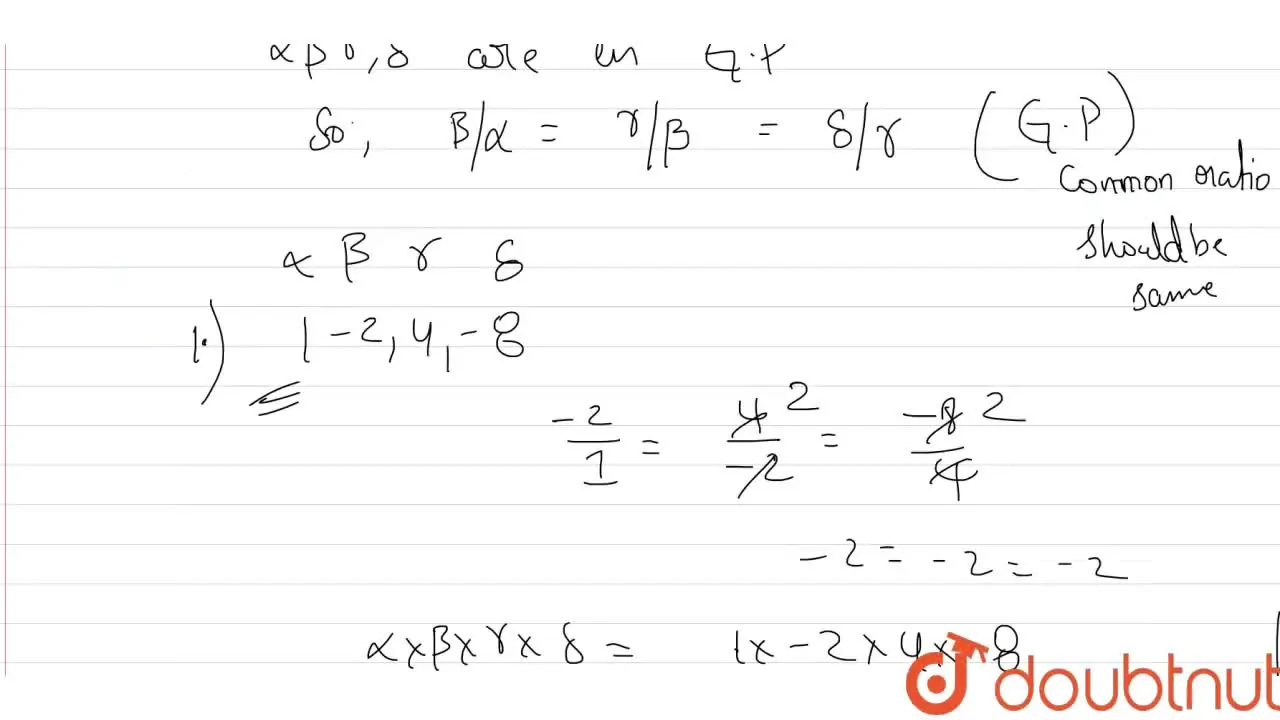 α β γ, δ are in G.P
So, β/α = γ/β = δ/γ (G.P)
common ratio
should be
same
α β γ δ
1.) 1 -2, 4, -8
-2/1 = 4/-2 2 = -8/4 2
-2 = -2 = -2
α×β×γ×δ = 1×-2×4×-8
doubtnut